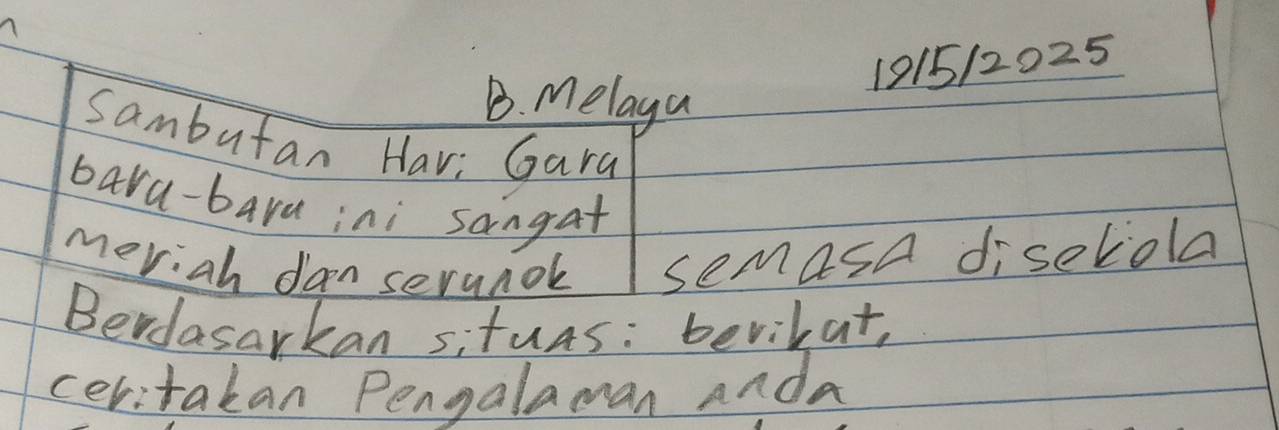 B. Melayu
19/5/2025
Sambutan Hari Gara
baru-baru ini sangat
Meriah dan serunok
semasa disekola
Berdasarkan situasi berikut,
ceritakan Pengalaman anda